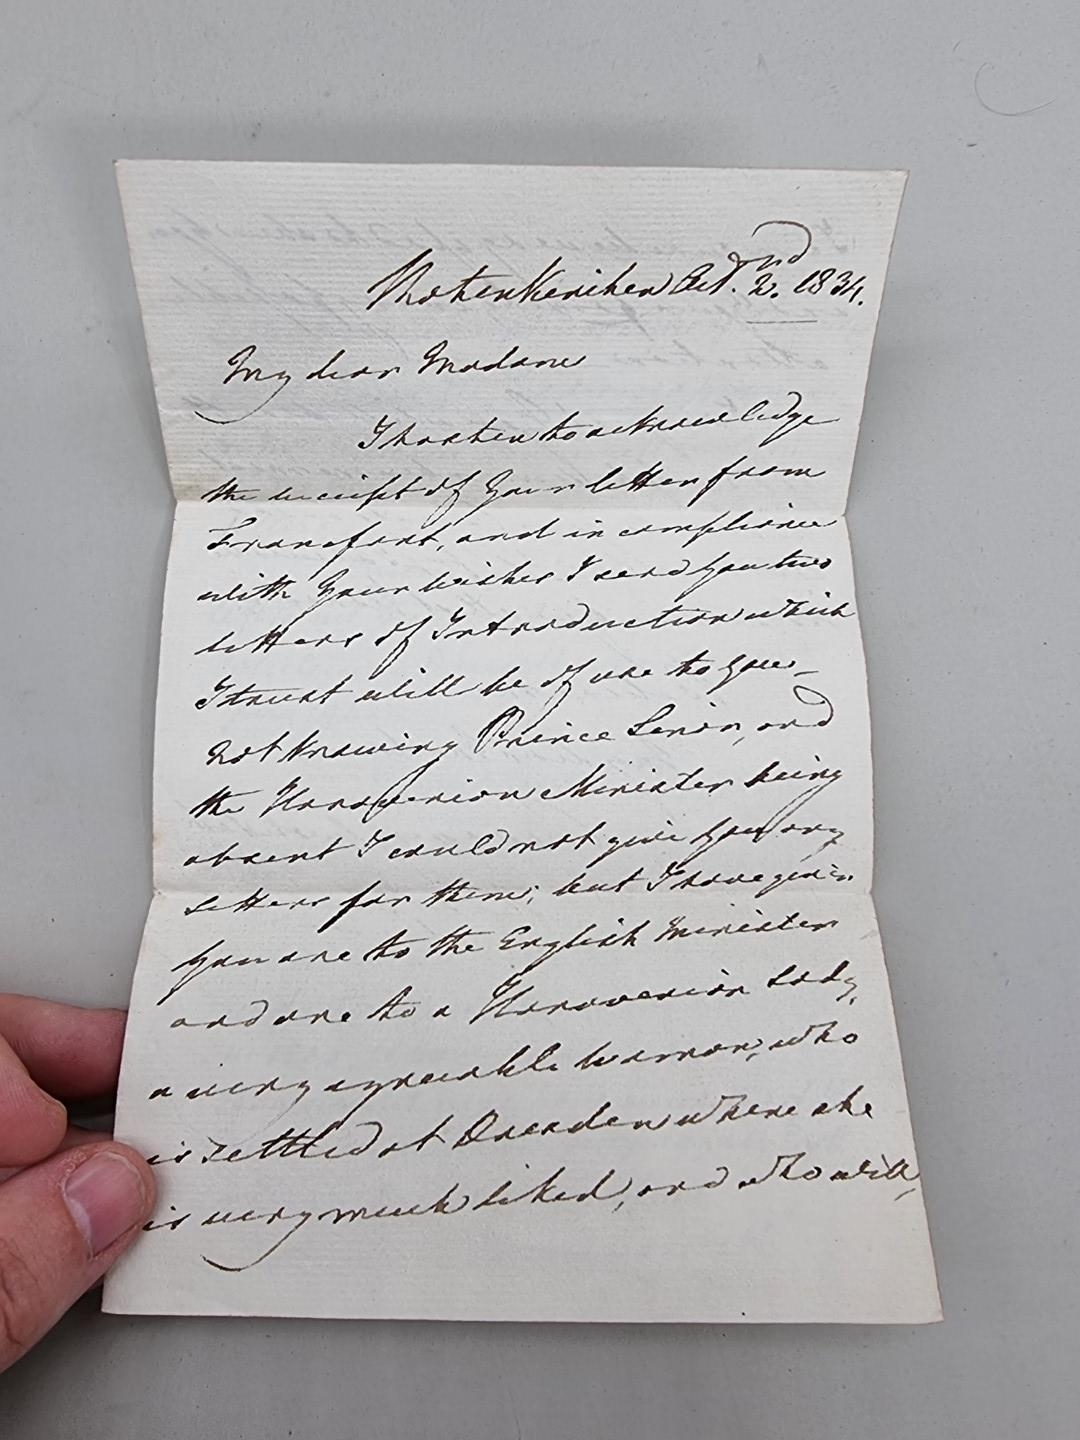 Rotenkirchen Oct. 2.nd 1834.
My dear Madame
I hasten to acknowledge
the receipt of your letter from
Francfort, and in compliance
with your wishes I send you two
letters of Introduction which
I trust will be of use to you_
not knowing Prince and
the Hanoverian Minister being
absent I could not give you any
letters for them; but I have given
you one to the English Minister
and one to a Hanoverian Lady,
a very agreeable woman, who
is settled at Dresden where she
is very much liked, and who will,